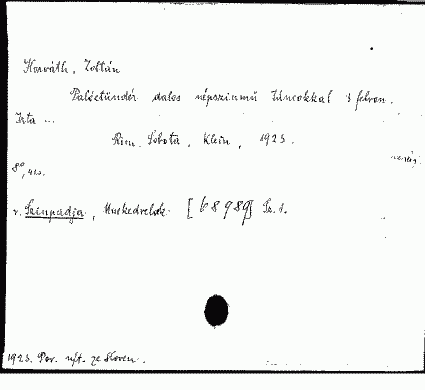 Horváth, Zoltán
Palóctündér dalos népszinmű táncokkal 3 felvon.
Irta ...
Rim. Sobota, Klein, 1923.
8°,
v. Szinpadja, Műkedvelők [68989] Sz. 1.
1923. Pov. výt. ze Sloven.